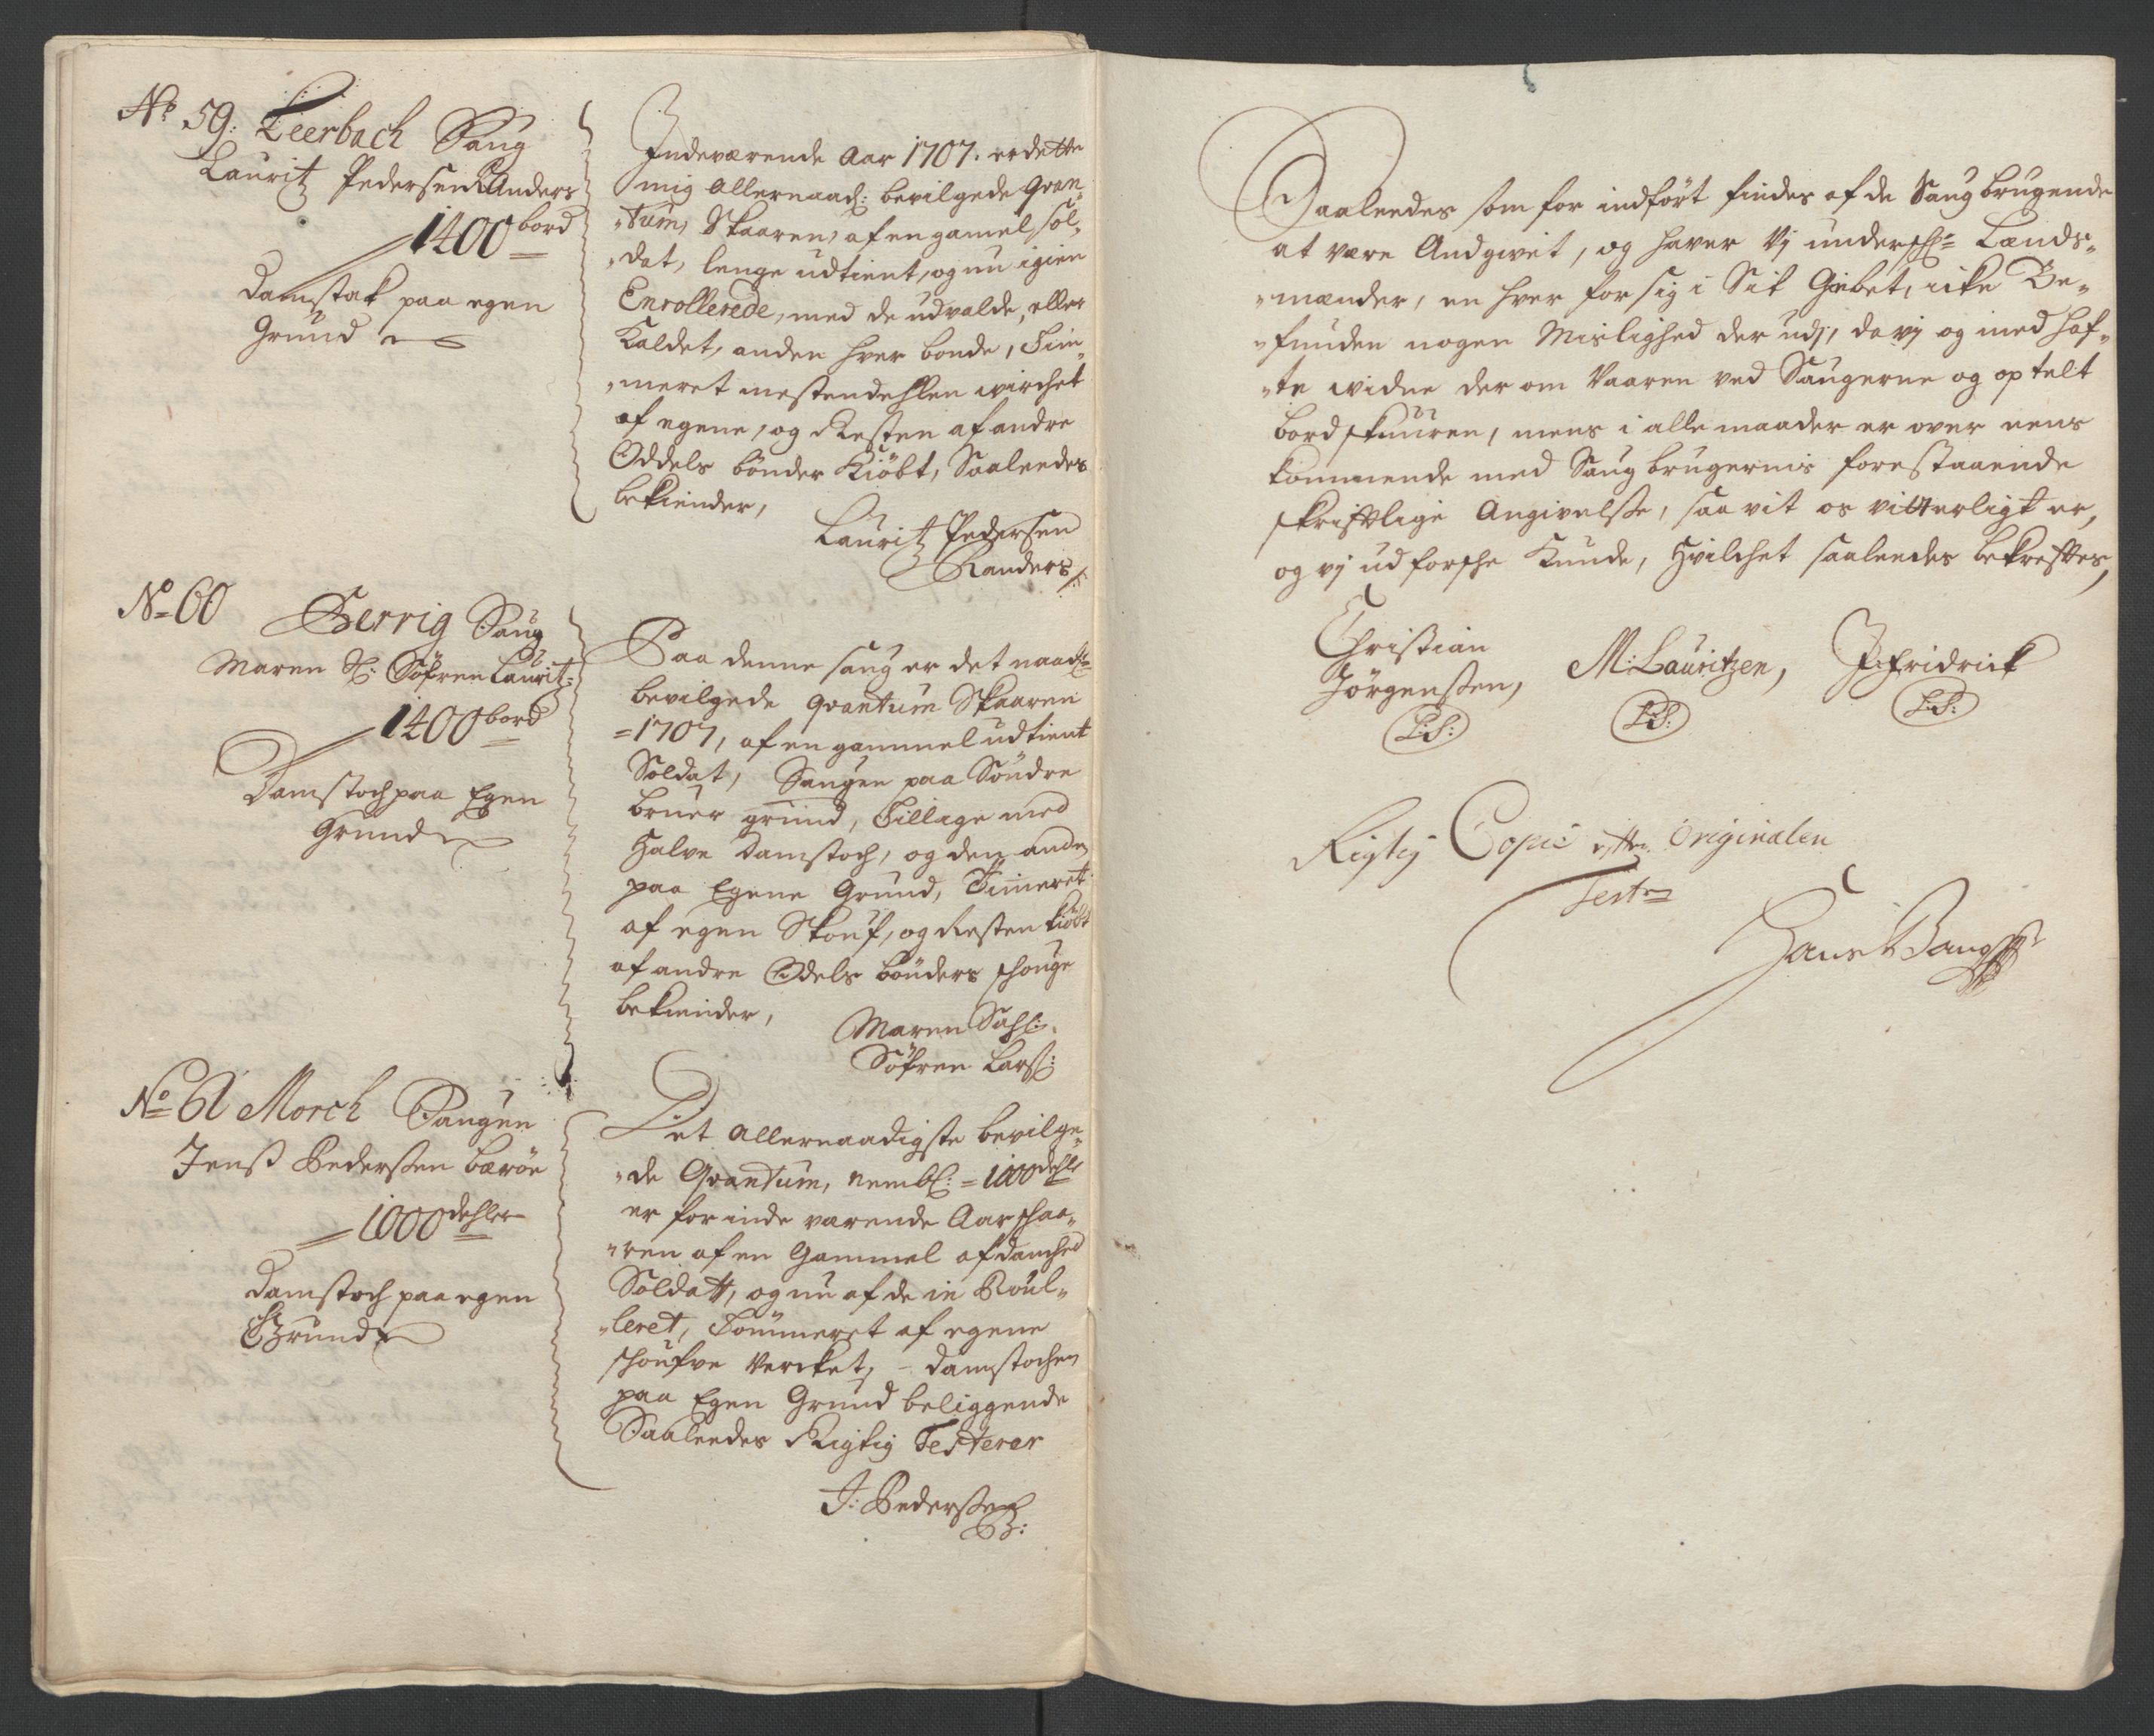 No 59. Leerbach Saug
Lauritz Pedersen Randers
1400 bord
Damstok paa egen
Grund
Indeværende Aar 1707. er dette
mig Allernaad: bevilgede Qvan-
"tum, Skaaren, af en gamel sol-
"dat, lenge udtient, og nu igien
Enrollerede, med de udvalde, eller
Kaldet, anden hver bonde, Tim-
"meret mestendehlen wirchet
af egene, og Resten af andre
Oddels bønder Kiöbt, Saaleedes
bekiender,
Lauritz Pedersen
Randers
No 60 Gerrig Saug
Maren Sl: Söfren Lauritz:
1400 bord
Damstoch paa Egen
Grund
Paa denne saug er det naadl:
bevilgede qvantum Skaaren
=1707, af en gammel udtient
Soldat, Saugen paa Söndre
bruer grund, Tillige med
Halve Damstoch, og den anden
paa Egene Grund, Timeret
af egen Skouf, og Resten kiöbt
af andre Odels bönders schouge
bekiender,
Maren Sahl:
Söfren Larss:
No 61 Morch Saugen
Jenss Pederssen Barøe
1000 dehler
Damstoch paa egen
Grund
Det allernaadigste bevilge-
"de Qvantum, nembl: = 1000 dehle
er for inde værende Aar schaa-
"ren af en Gammel afdanched
Soldatt, og nu af de in Roul-
"leret, Tömmeret af egene
schoufve Vercket, - Damstochen
paa Egen Grund beliggende
Saaleedes Rigtig Testerer
J: Pederssen
B:
Saaleedes som for indført findes af de Saugbrugende
at være Andgivet, og haver Vj underschr: Lænds-
"mænder, en hver for sig i Sit Giebet, icke Be-
"funden nogen Mislighed der udj, da vj og med haf-
"te widne der om Vaaren ved Saugerne og optelt
bordskuuren, mens i alle maader er over eens
kommende med Saugbrugernis forestaaende
skriftlige Angivelsse, saa vit os vitterligt er,
og vj udforsche Kunde, Hvilchet saaleedes bekreftes,
Christian
Jörgenssen,
L:S:
M: Lauritzen,
L:S:
J: Fridrick
L:S:
Rigtig Copie efter Originalen
Test:
Hans Bang